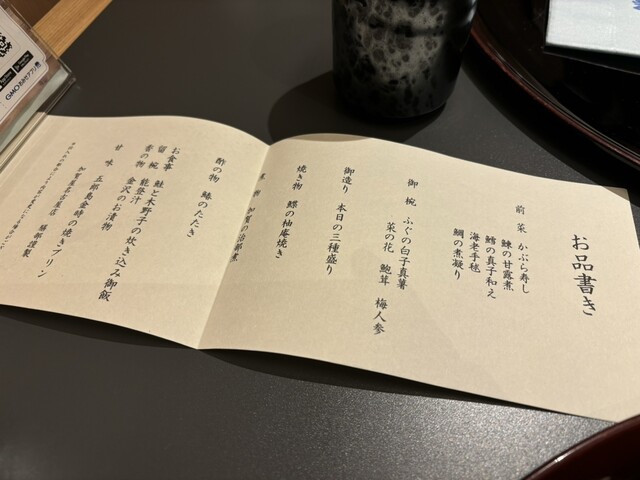 お品書き
前菜 かぶら寿し
鰊の甘露煮
鱈の真子和え
海老手毬
鯛の煮凝り
御椀 ふぐの白子真薯
菜の花 鮑茸 梅人参
御造り 本日の三種盛り
焼き物 鰤の柚庵焼き
蓋物 加賀の治部煮
酢の物 鯵のたたき
お食事 鮭と木野子の炊き込み御飯
留椀 能登汁
香の物 金沢のお漬物
甘味 五郎島金時の焼きプリン
加賀屋名古屋店
GMO